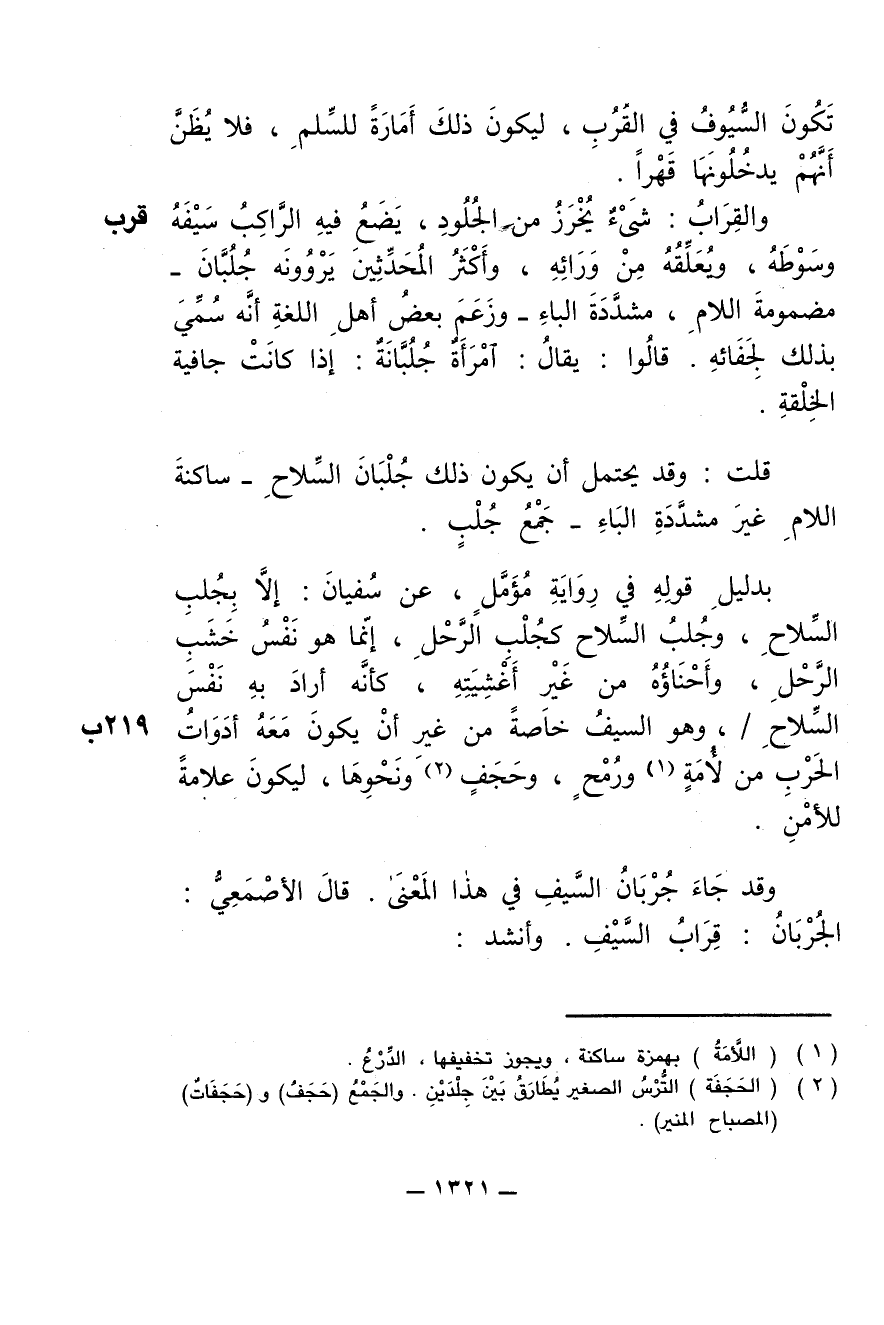 تَكُونَ السُّيُوفُ في القُرُبِ ، ليكونَ ذلكَ أَمَارَةً للسِّلمِ ، فلا يُظَنَّ
أَنَّهُمْ يدخُلُونَهَا قَهْراً .
والقِرَابُ : شَيْءٌ يُخْرَزُ من الجُلُودِ ، يَضَعُ فيهِ الرَّاكِبُ سَيْفَهُ قرب
وسَوْطَهُ ، ويُعَلِّقُهُ مِنْ وَرَائِهِ ، وأَكْثَرُ المُحَدِّثِينَ يَرْوُونَه جُلُبَّانَ ــ
مضمومةَ اللامِ ، مشدَّدَةَ الباءِ ــ وزَعَمَ بعضُ أهلِ اللغةِ أنَّه سُمِّيَ
بذلك لِجَفَائهِ . قالُوا : يقالُ : ٱمْرَأَةٌ جُلُبَّانَةٌ : إذا كانَتْ جافية
الخِلْقةِ .
قلت : وقد يحتمل أن يكون ذلك جُلْبَانَ السِّلاحِ ــ ساكنةَ
اللامِ غيرَ مشدَّدَةِ البَاءِ ــ جَمْعُ جُلْبٍ .
بدليلِ قولِهِ في رِوَايَةِ مُؤَمَّلٍ ، عن سُفيانَ : إلَّا بِجُلبِ
السِّلاحِ ، وجُلبُ السِّلاح كجُلْبِ الرَّحْلِ ، إنَّما هو نَفْسُ خَشَبِ
الرَّحْلِ ، وأَحْنَاؤُهُ من غَيْر أَغْشِيَتِهِ ، كأنَّه أرادَ بهِ نَفْسَ
السِّلاحِ / ، وهو السيفُ خاَصةً من غيرِ أنْ يكونَ مَعَهُ أدَوَاتُ ٢١٩ب
الحَرْبِ من لُأمَةٍ (١) ورُمْحٍ ، وحَجَفٍ (٢) ونَحْوِهَا ، ليكونَ علامةً
للأمْنِ .
وقد جَاءَ جُرْبَانُ السَّيفِ في هذٰا المَعْنَىٰ . قالَ الأصْمَعِيُّ :
الجُرْبَانُ : قِرَابُ السَّيْفِ . وأنشد :
(١) ( اللَّأمَةُ ) بهمزة ساكنة ، ويجوز تخفيفها ، الدِّرْعُ .
(٢) ( الحَجَفَة ) التُّرْسُ الصغير يُطَارَقُ بَيْنَ جِلْدَيْنِ . والجَمْعُ (حَجَفُ) و (حَجَفَاتُ)
(المصباح المنير) .
ــ ١٣٢١ ــ